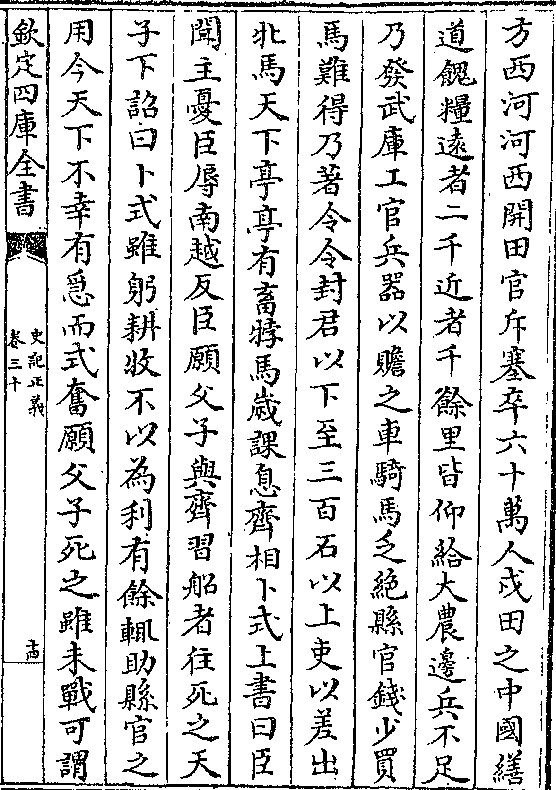 方西河河西開田官斥塞卒六十萬人戍田之中國繕
道餽糧遠者二千近者千餘里皆仰給大農邊兵不足
乃發武庫工官兵器以贍之車騎馬乏絕縣官錢少買
馬難得乃著令令封君以下至三百石以上吏以差出
北馬天下亭亭有畜牸馬歲課息齊相卜式上書曰臣
聞主憂臣辱南越反臣願父子與齊習船者往死之天
子下詔曰卜式雖躬耕牧不以為利有餘輒助縣官之
用今天下不幸有急而式奮願父子死之雖未戰可謂
欽定四庫全書
史記正義
卷三十
十四